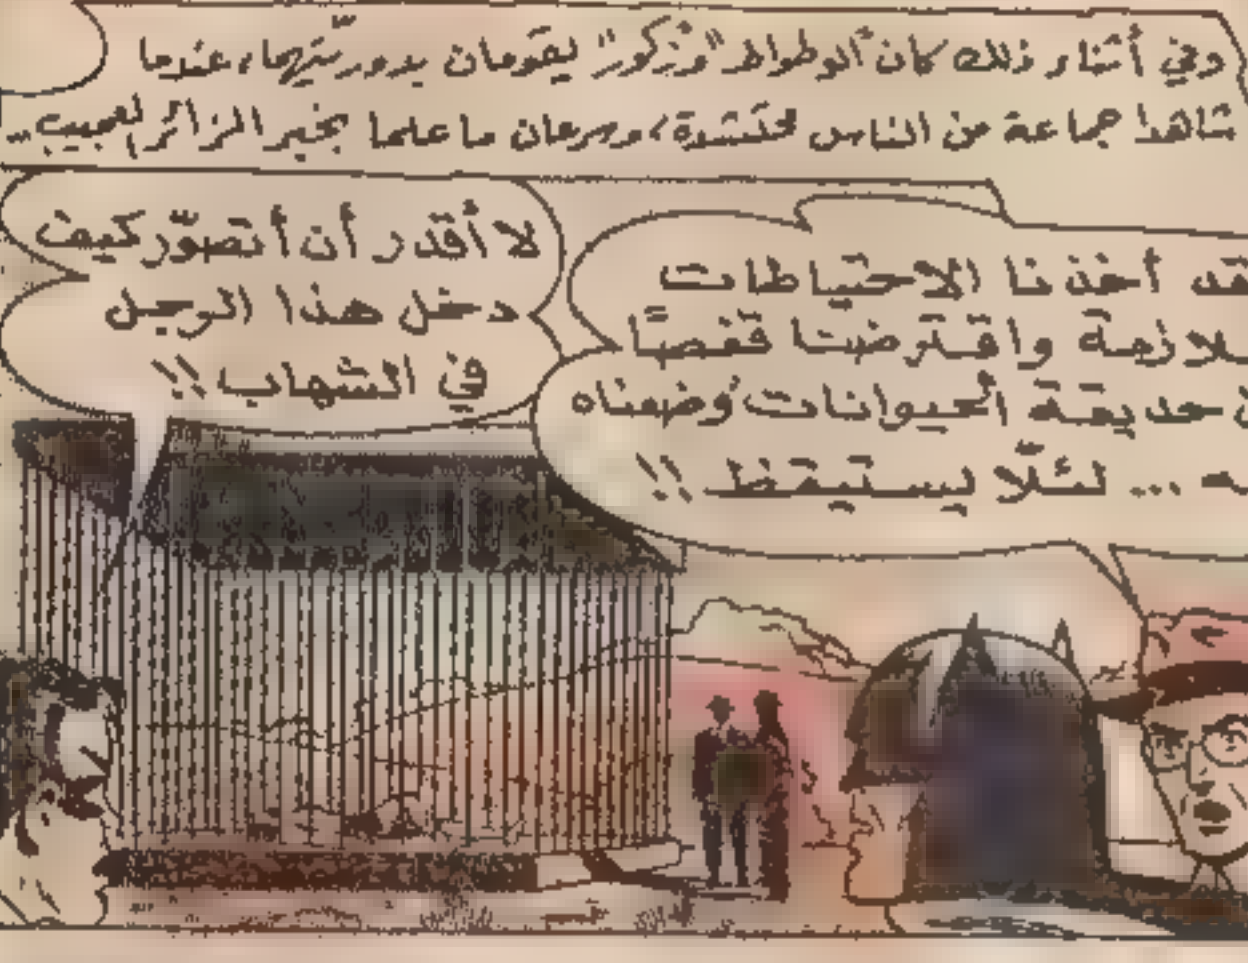 وفي أثناء ذلك كان "الوطواط" و"زكور" يقومان بدوريّتهما، عندما
شاهدا جماعة من الناس محتشدة، وسرعان ما علما بخبر الزائر العجيب...
قد أخذنا الاحتياطات
للازمة واقترضنا قفصًا
حديقة الحيوانات وضعناه
... لئلّا يستيقظ !!
لا أقدر أن أتصوّر كيف
دخل هذا الرجل
في الشهاب !!